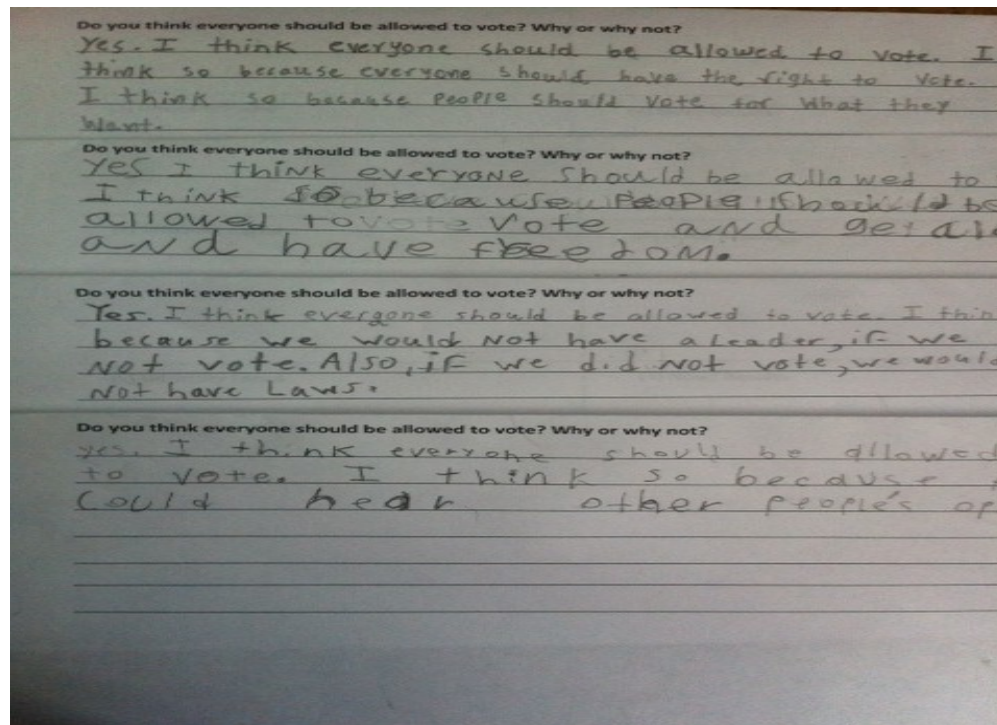 Do you think everyone should be allowed to vote? Why or why not?
Yes. I think everyone should be allowed to vote. I
think so because everyone should have the right to vote.
I think so because people should vote for what they
want.
Do you think everyone should be allowed to vote? Why or why not?
Yes I think everyone should be allowed to
I think so because people should be
allowed to vote and get
and have freedom.
Do you think everyone should be allowed to vote? Why or why not?
Yes. I think everyone should be allowed to vote. I thin
because we would not have a leader, if we
not vote. Also, if we did not vote, we would
not have Laws.
Do you think everyone should be allowed to vote? Why or why not?
yes. I think everyone should be allowed
to vote. I think so because
Could hear other people's op